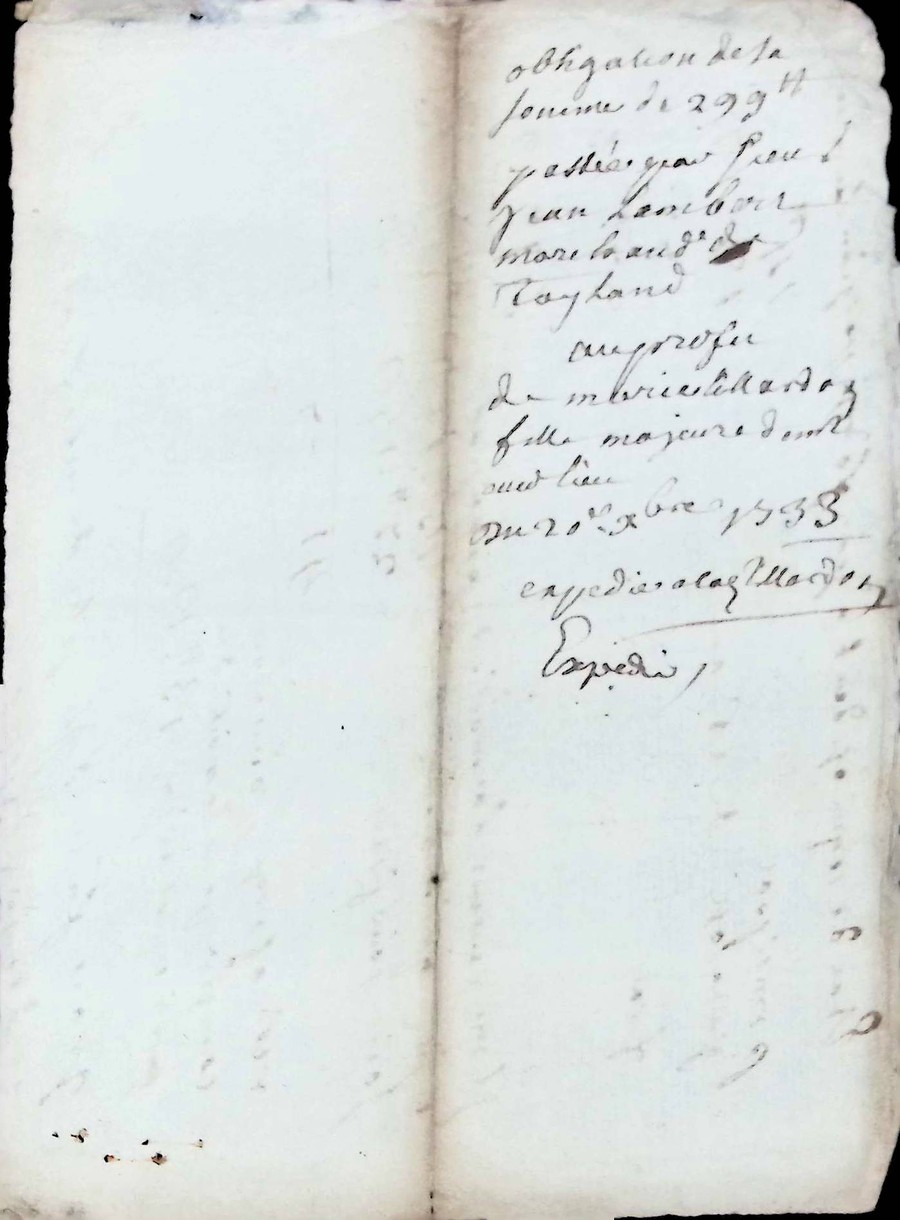 obligation de la
somme de 299 tt
passée par sieur
Jean Lambert
marchand de
Toyland
au profit
de marie
fille majeure demt
aud lieu
Du 20e xbre 1733
expediée a la
Expedié